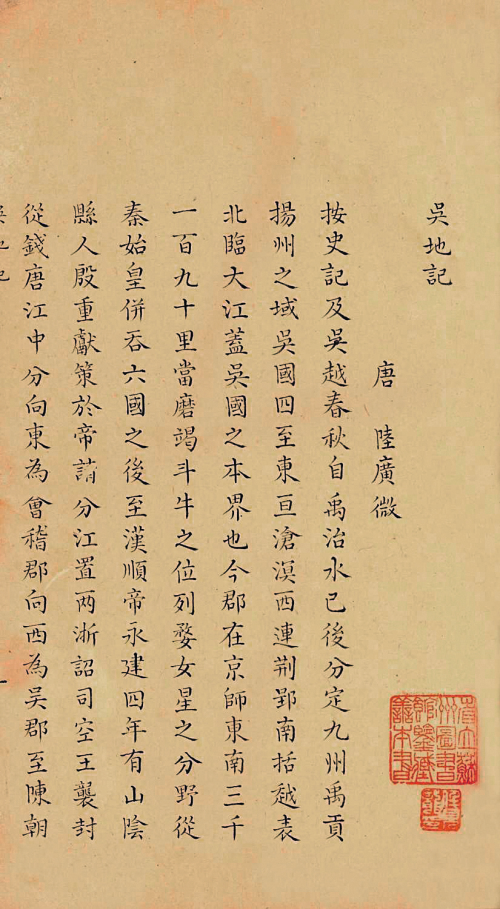 吳地記
唐 陸廣微
按史記及吳越春秋自禹治水已後分定九州禹貢
揚州之域吳國四至東亘滄溟西連荆郢南括越表
北臨大江蓋吳國之本界也今郡在京師東南三千
一百九十里當磨竭斗牛之位列婺女星之分野從
秦始皇併吞六國之後至漢順帝永建四年有山陰
縣人殷重獻策於帝請分江置两淅詔司空王襲封
從錢唐江中分向東為會稽郡向西為吳郡至陳朝
吳地記